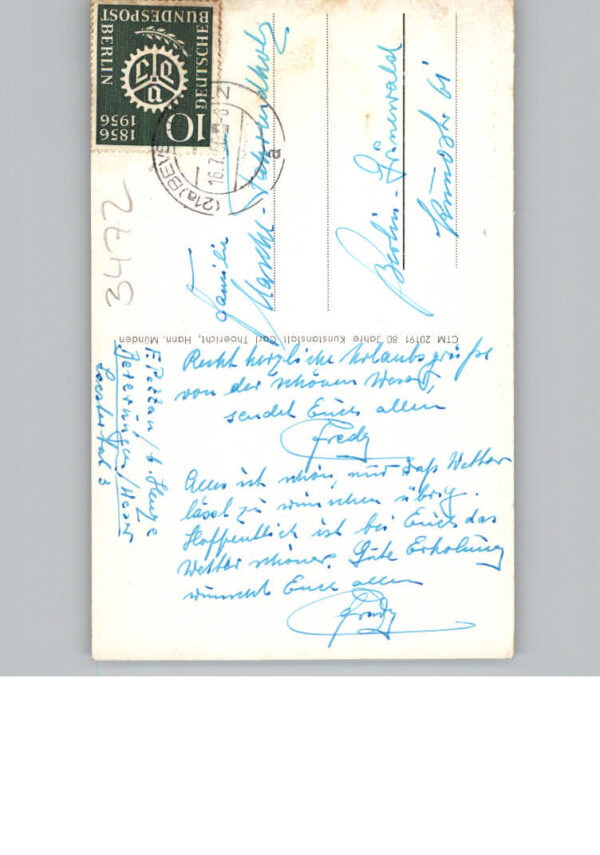 Recht herzliche Urlaubsgrüße
von der schönen Weser,
sendet Euch allen
Fredy
Alles ist schön, nur das Wetter
lässt zu wünschen übrig.
Hoffentlich ist bei Euch das
Wetter schöner. Gute Erholung
wünscht Euch allen
Fredy
Beverungen/Weser
3
CTM 20191 80 Jahre Kunstanstalt Carl Thoericht, Hann. Münden
Familie
Berlin-Grunewald
61
3472
DEUTSCHE
BUNDESPOST
BERLIN
10
1856
1956
(21a) BEVE
16.7.
a